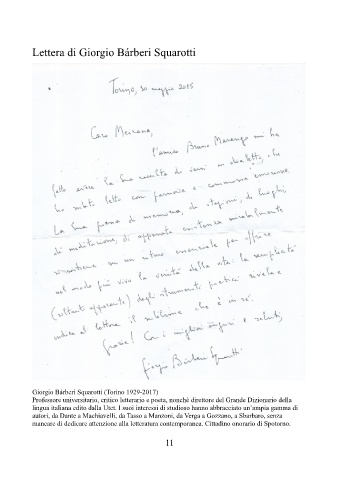 Lettera di Giorgio Bárberi Squarotti
Torino, 30 maggio 2015
Caro Meirana,
l'amico Bruno Marengo mi ha
fatto avere la Sua raccolta di versi in dialetto, che
ho subito letto con piacere e commossa emozione.
La Sua poesia di memoria, di stagioni, di luoghi,
di meditazione, di appassionata esistenza mirabilmente
si un ritmo essenziale per offrire
nel modo più vivo la verità della vita: la semplicità
(soltanto apparente) degli strumenti poetici rivela e
indica al lettore il sublime che è in sé.
Grazie! Con i migliori auguri e saluti,
Giorgio Bárberi Squarotti
Giorgio Bárberi Squarotti (Torino 1929-2017)
Professore universitario, critico letterario e poeta, nonché direttore del Grande Dizionario della
lingua italiana edito dalla Utet. I suoi interessi di studioso hanno abbracciato un'ampia gamma di
autori, da Dante a Machiavelli, da Tasso a Manzoni, da Verga a Gozzano, a Sbarbaro, senza
mancare di dedicare attenzione alla letteratura contemporanea. Cittadino onorario di Spotorno.
11